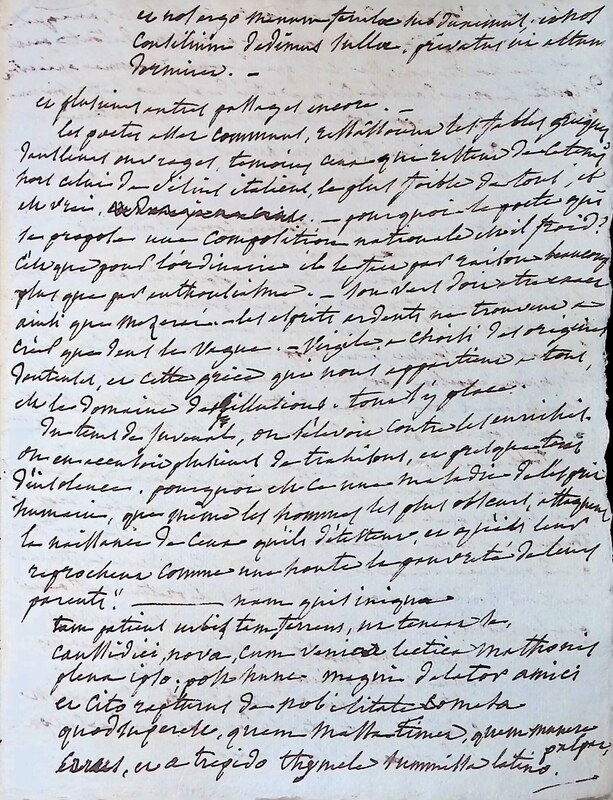 et nos ergo manum ferulae subduximus, et nos
Consilium dedimus Sullae, privatus ut altum
Dormiret. —
et plusieurs autres passages encore. —
les poetes assez communs, ressassoient les fables grecques
dans leurs ouvrages, temoins ceux qui restent de ce tems
hors celui de Silius italicus, le plus foible de tous, il
est vrai, — pourquoi le poete qui
se propose une composition nationale est il froid?
C'est que pour l'ordinaire il le fait par raison beaucoup
plus que par enthousiasme. — son vers doit etre exact
ainsi que Mezerai. — les esprits ardents ne trouvent a
créer que dans le vague. — Virgile a choisi des origines
douteuses, et cette grèce que nous appartient a tous,
est le domaine des illusions. tous y place.
Du tems de Juvenal, on s'élevoit contre les enrichis.
on en accusoit plusieurs de trahisons, et presque tous
d'insolence. pourquoi est ce une maladie de l'esprit
humain, que même les hommes les plus obscurs, attaquent
la naissance de ceux qu'ils détestent, et qu'ils leur
reprochent comme une honte la pauvreté de leurs
parents." — nam quis iniquae
tam patiens urbis tam ferreus, ut teneat se,
causidici, nova, cum veniat lectica mathonis
plena ipso: post hunc magni delator amici
et Cito rapturus de nobilitate Comesa
quod superest, quem Massa timet, quem munere
palpat,
Carus, et a trepido thymele summissa latino.